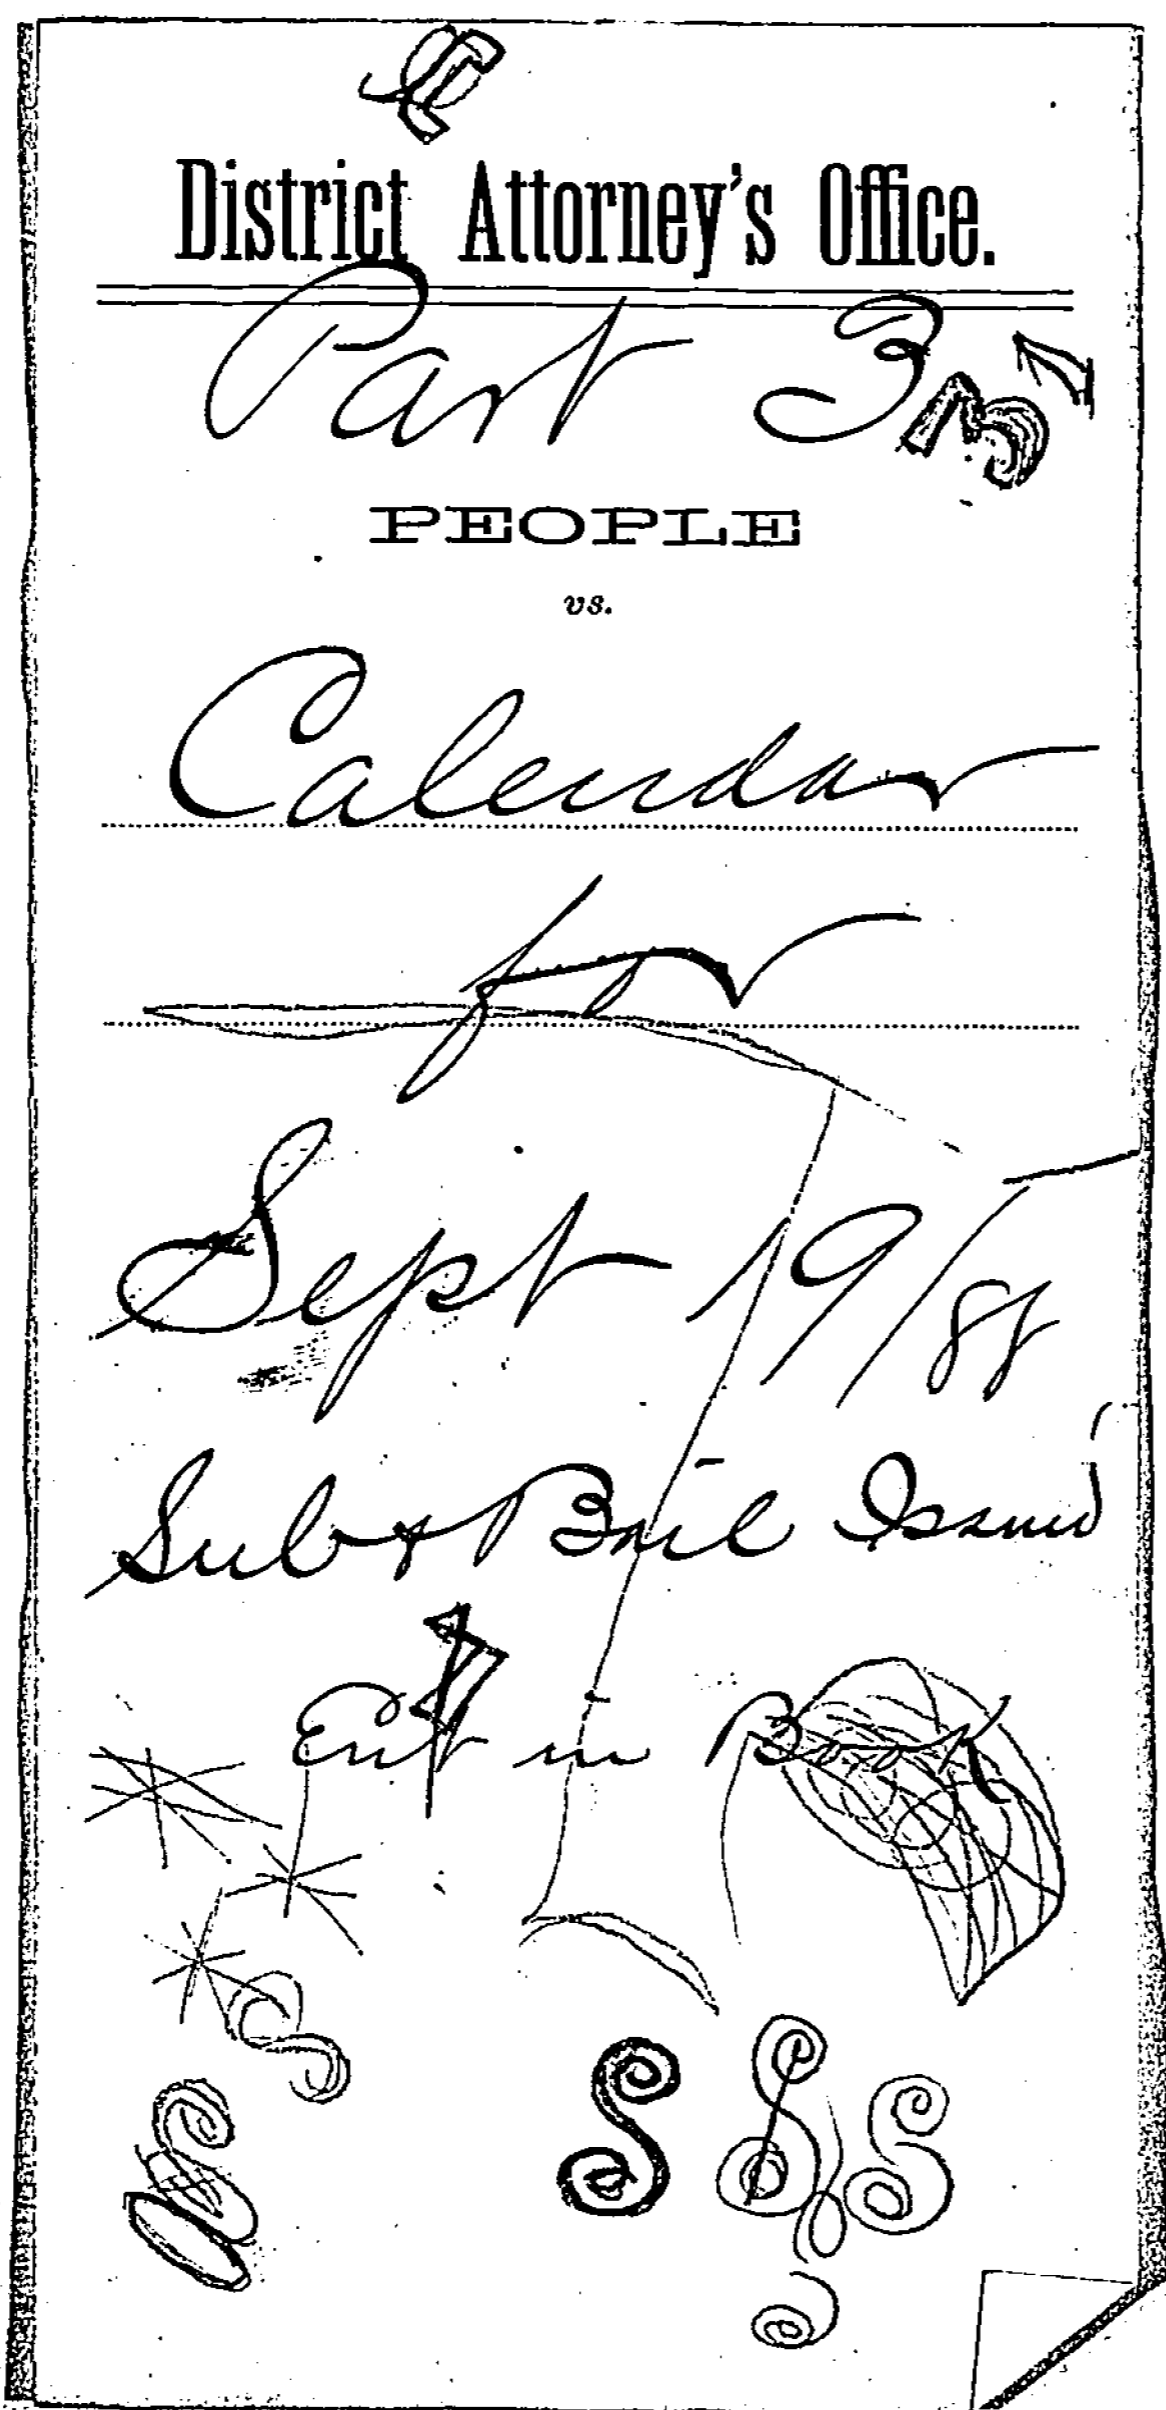 District Attorney's Office.
Part 3
PEOPLE
vs.
Calendar
for
Sept 19/88
Sub & Bail Issued
Ent in Book